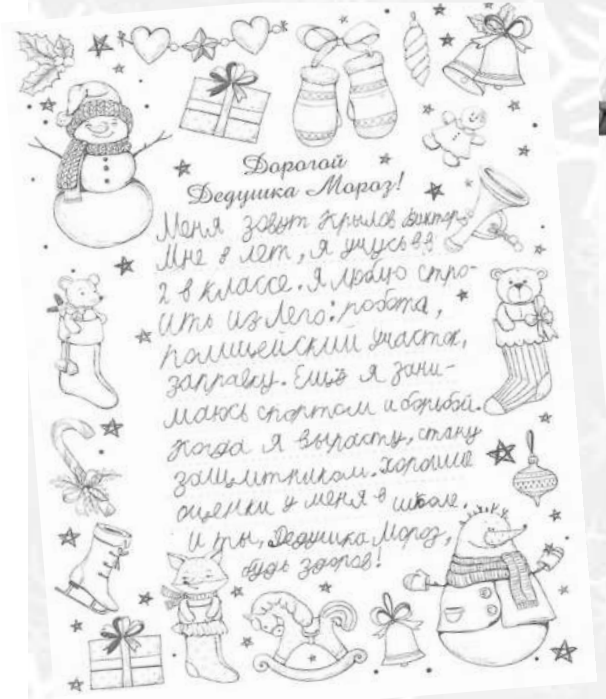 Дорогой
Дедушка Мороз!
Меня зовут Крылов Виктор.
Мне 8 лет, я учусь в
2 в классе. Я люблю стро-
ить из Лего: робота,
полицейский участок,
заправку. Ещё я зани-
маюсь спортом и борьбой.
Когда я вырасту, стану
защитником. Хорошие
оценки у меня в школе.
И ты, Дедушка Мороз,
будь здоров!